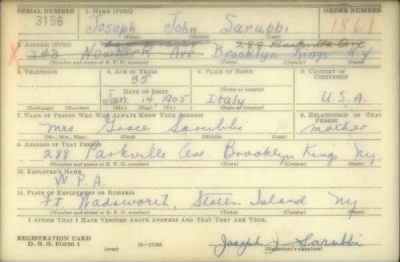 SERIAL NUMBER 1. NAME (Print) ORDER NUMBER
3156 Joseph John Sarubbi 1861
2. ADDRESS (Print) 288 Parkville Ave
X 242 Ave Brooklyn Kings NY
(Number and street or R. F. D. number) (Town) (County) (State)
3. TELEPHONE 4. AGE IN YEARS 5. PLACE OF BIRTH 6. COUNTRY OF CITIZENSHIP
35
DATE OF BIRTH Italy U.S.A.
Jan. 14, 1905
(Exchange) (No.) (Mo.) (Day) (Yr.) (State or country)
7. NAME OF PERSON WHO WILL ALWAYS KNOW YOUR ADDRESS 8. RELATIONSHIP OF THAT PERSON
Mrs. Grace Sarubbi mother
(Mr., Mrs., Miss) (First) (Middle) (Last)
9. ADDRESS OF THAT PERSON
288 Parkville Ave Brooklyn Kings Ny
(Number and street or R. F. D. number) (Town) (County) (State)
10. EMPLOYER'S NAME
W.P.A.
11. PLACE OF EMPLOYMENT OR BUSINESS
Ft Wadsworth, Staten Island Ny
(Number and street or R. F. D. number) (Town) (County) (State)
I AFFIRM THAT I HAVE VERIFIED ABOVE ANSWERS AND THAT THEY ARE TRUE.
REGISTRATION CARD
D. S. S. Form 1 (over) Joseph J Sarubbi
(Registrant's signature)